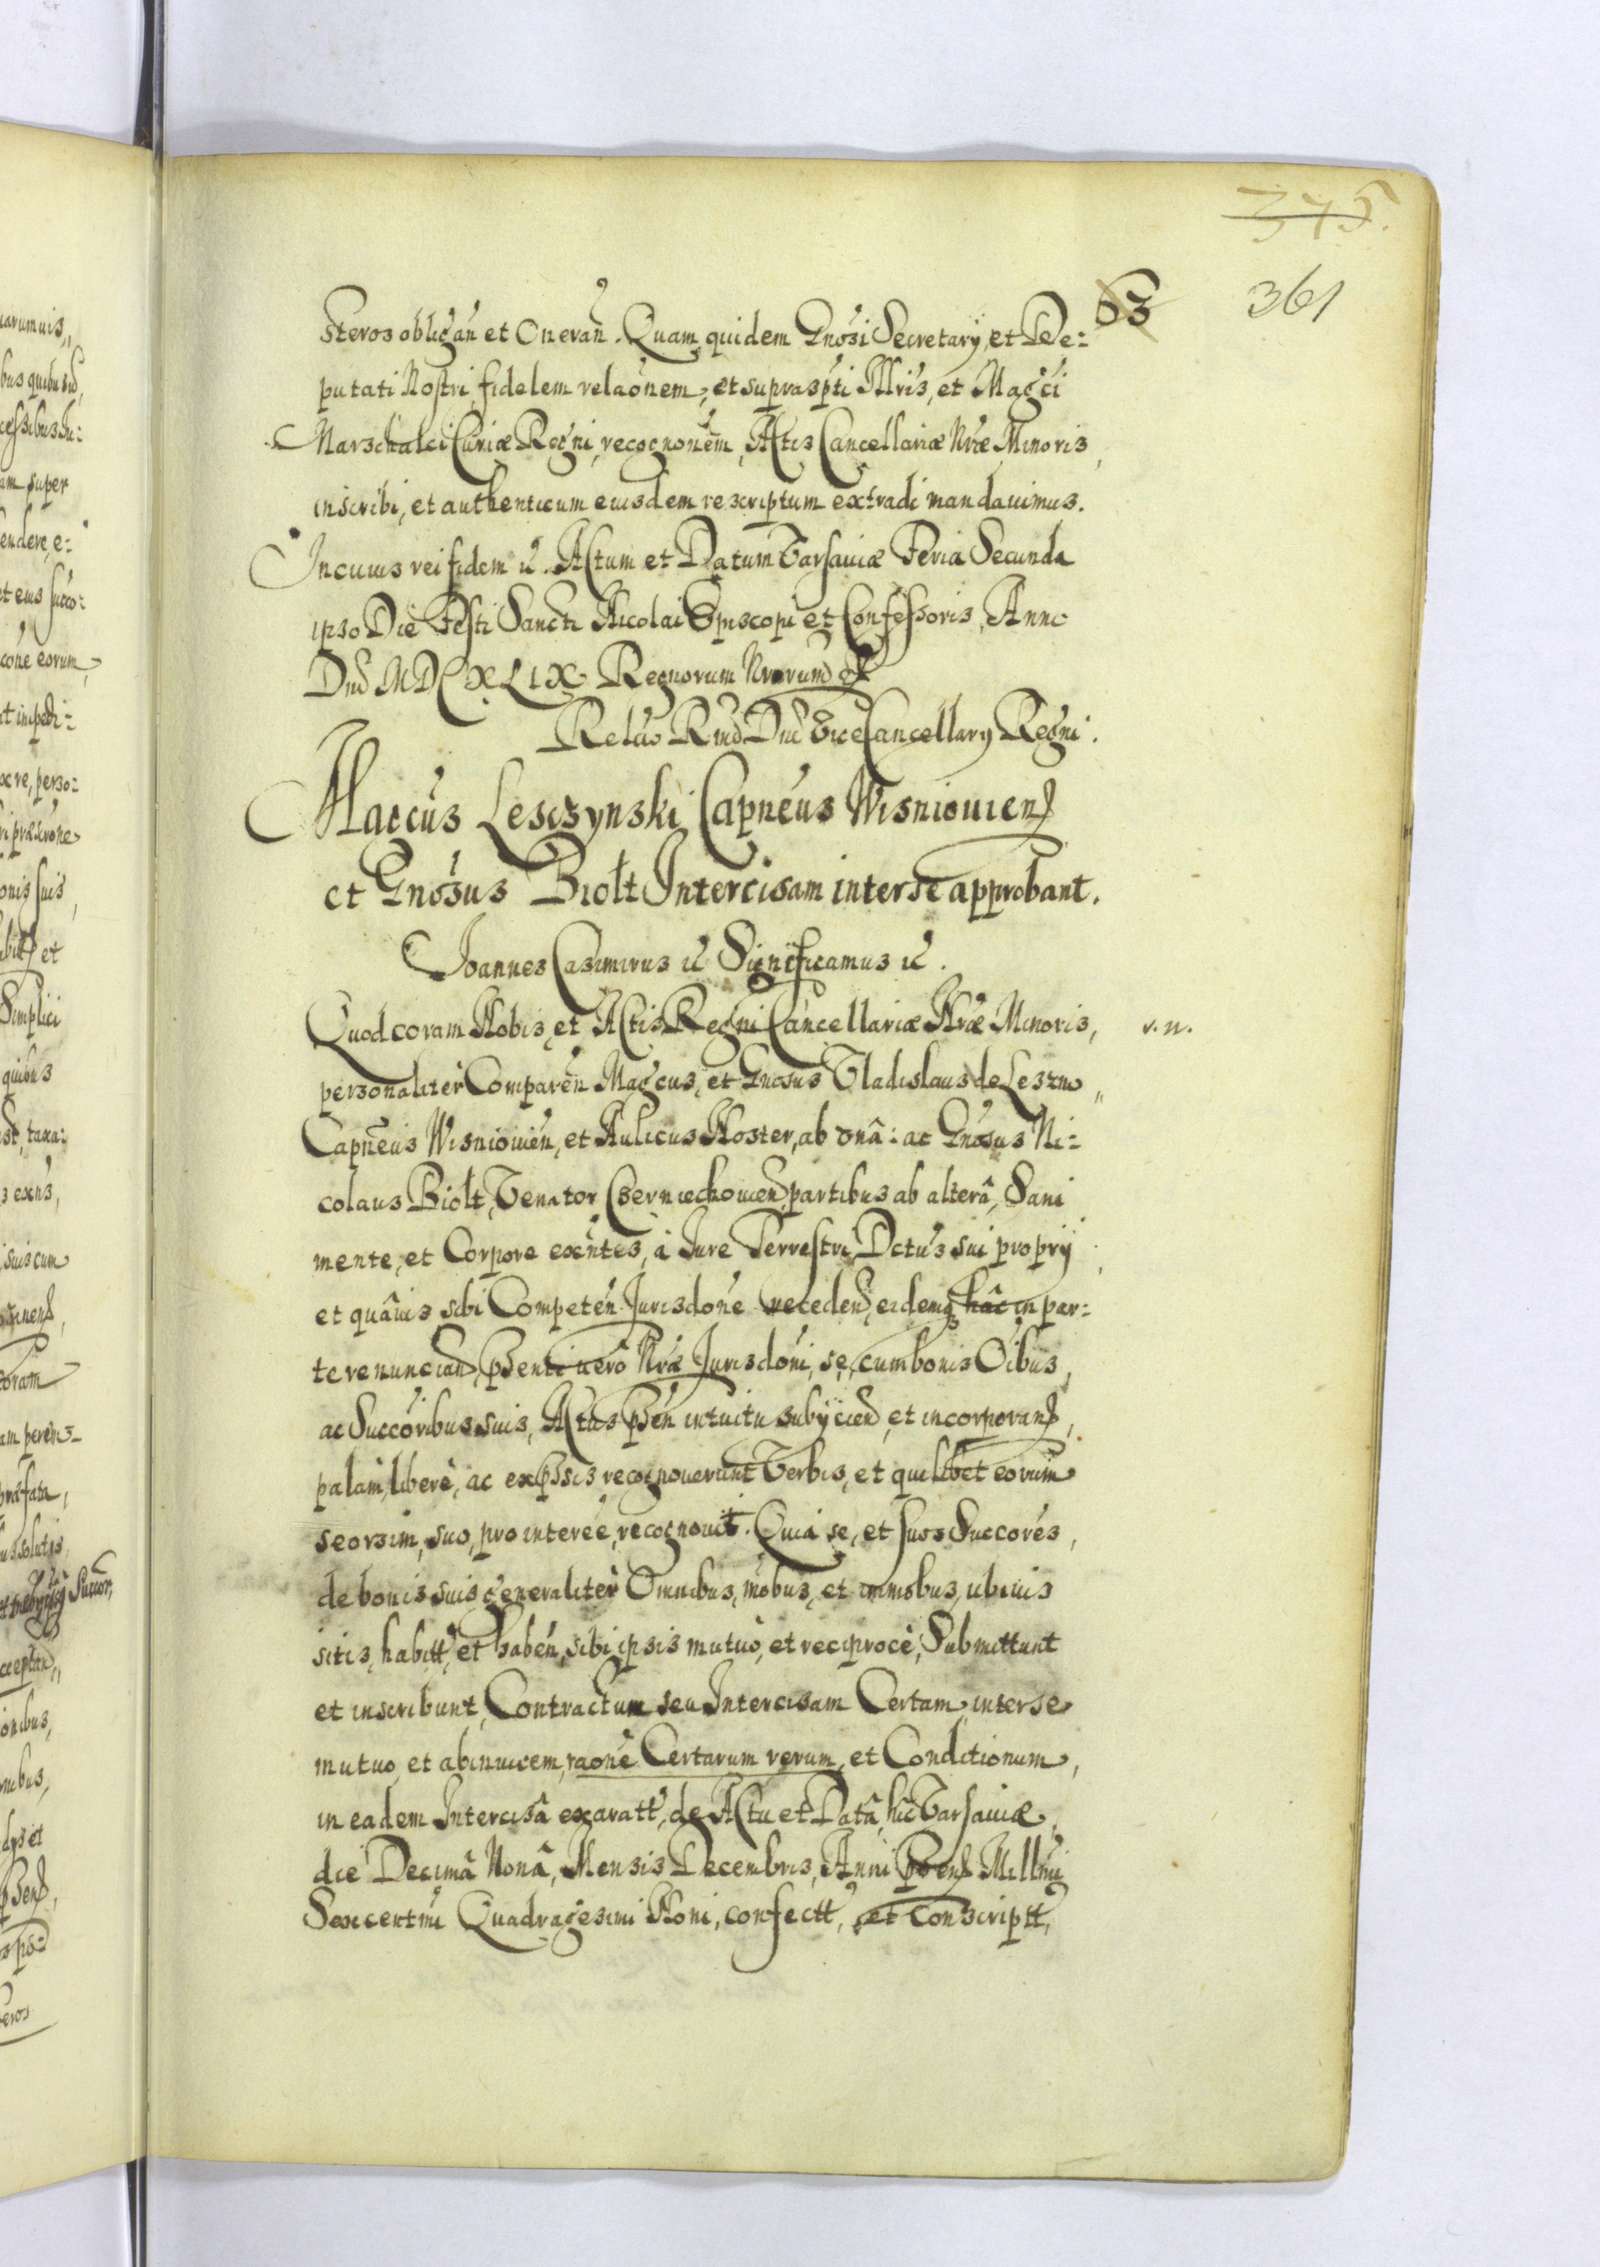 375.
63
361
steros obligan̄ et Oneran̄. Quam quidem Gnōsi Secretarÿ, et De-
putati Nostri, fidelem relaōnem, et suprasp̄ti Illris, et Magci
Marschalci Curiæ Regni, recognoñem, Actis Cancellariæ Nræ Minoris,
inscribi, et authenticum eiusdem rescriptum extradi mandauimus.
In cuius rei fidem &c. Actum et Datum Varsauiæ Feria Secunda
ipso Die Festi Sancti Nicolai Episcopi et Confessoris, Anno
Dnī MDCXLIX. Regnorum Nrorum &c
Relāo Rndī Dnī ViceCancellarÿ Regni.
Magcus Lesczynski Capneus Wisniouien
et Gnōsus Biołt Intercisam inter se approbant.
Joannes Casimirus &c Significamus &c.
Quod coram Nobis, et Actis Regni Cancellariæ Nræ Minoris,
v. n.
personaliter Comparen̄ Magcus, et Gnosus Vladislaus de Leszno,
Capneus Wisniouien̄, et Aulicus Noster, ab vnâ: ac Gnosus Ni-
colaus Biołt, Venator Czerniechouien, partibus ab alterâ, Sani
mente, et Corpore exn̄tes, à Iure Terrestri, Dctūs sui proprÿ
et quâuis sibi Competen̄ Jurisdōne receden, eidemq hâc in par-
te renuncian, pn̄ti uerò Nræ Jurisdōni, se, cum bonis Oībus,
ac Succōribus suis, Actus pn̄ intuitu subÿcien, et incorporan,
palàm, liberè, ac expssis recognouerunt Verbis, et quilibet eorum
seorsim, suo, pro interēe, recognouit. Quia se, et suos Succores,
de bonis suis generaliter Omnibus, mōbus, et immobus, ubiuis
sitis, habitt, et haben̄, sibi ipsis mutuò, et reciprocè, Submittunt
et inscribunt, Contractum seu Intercisam Certam, inter se
mutuo, et abinuicem, raōne Certarum rerum, et Conditionum,
in eadem Intercisâ exaratt, de Actu et Datâ, hic Varsauiæ,
die Decimâ Nonâ, Mensis Decembris, Anni pn̄ Millmi
Sexcentmi Quadragesimi Noni, confectt, et conscriptt,